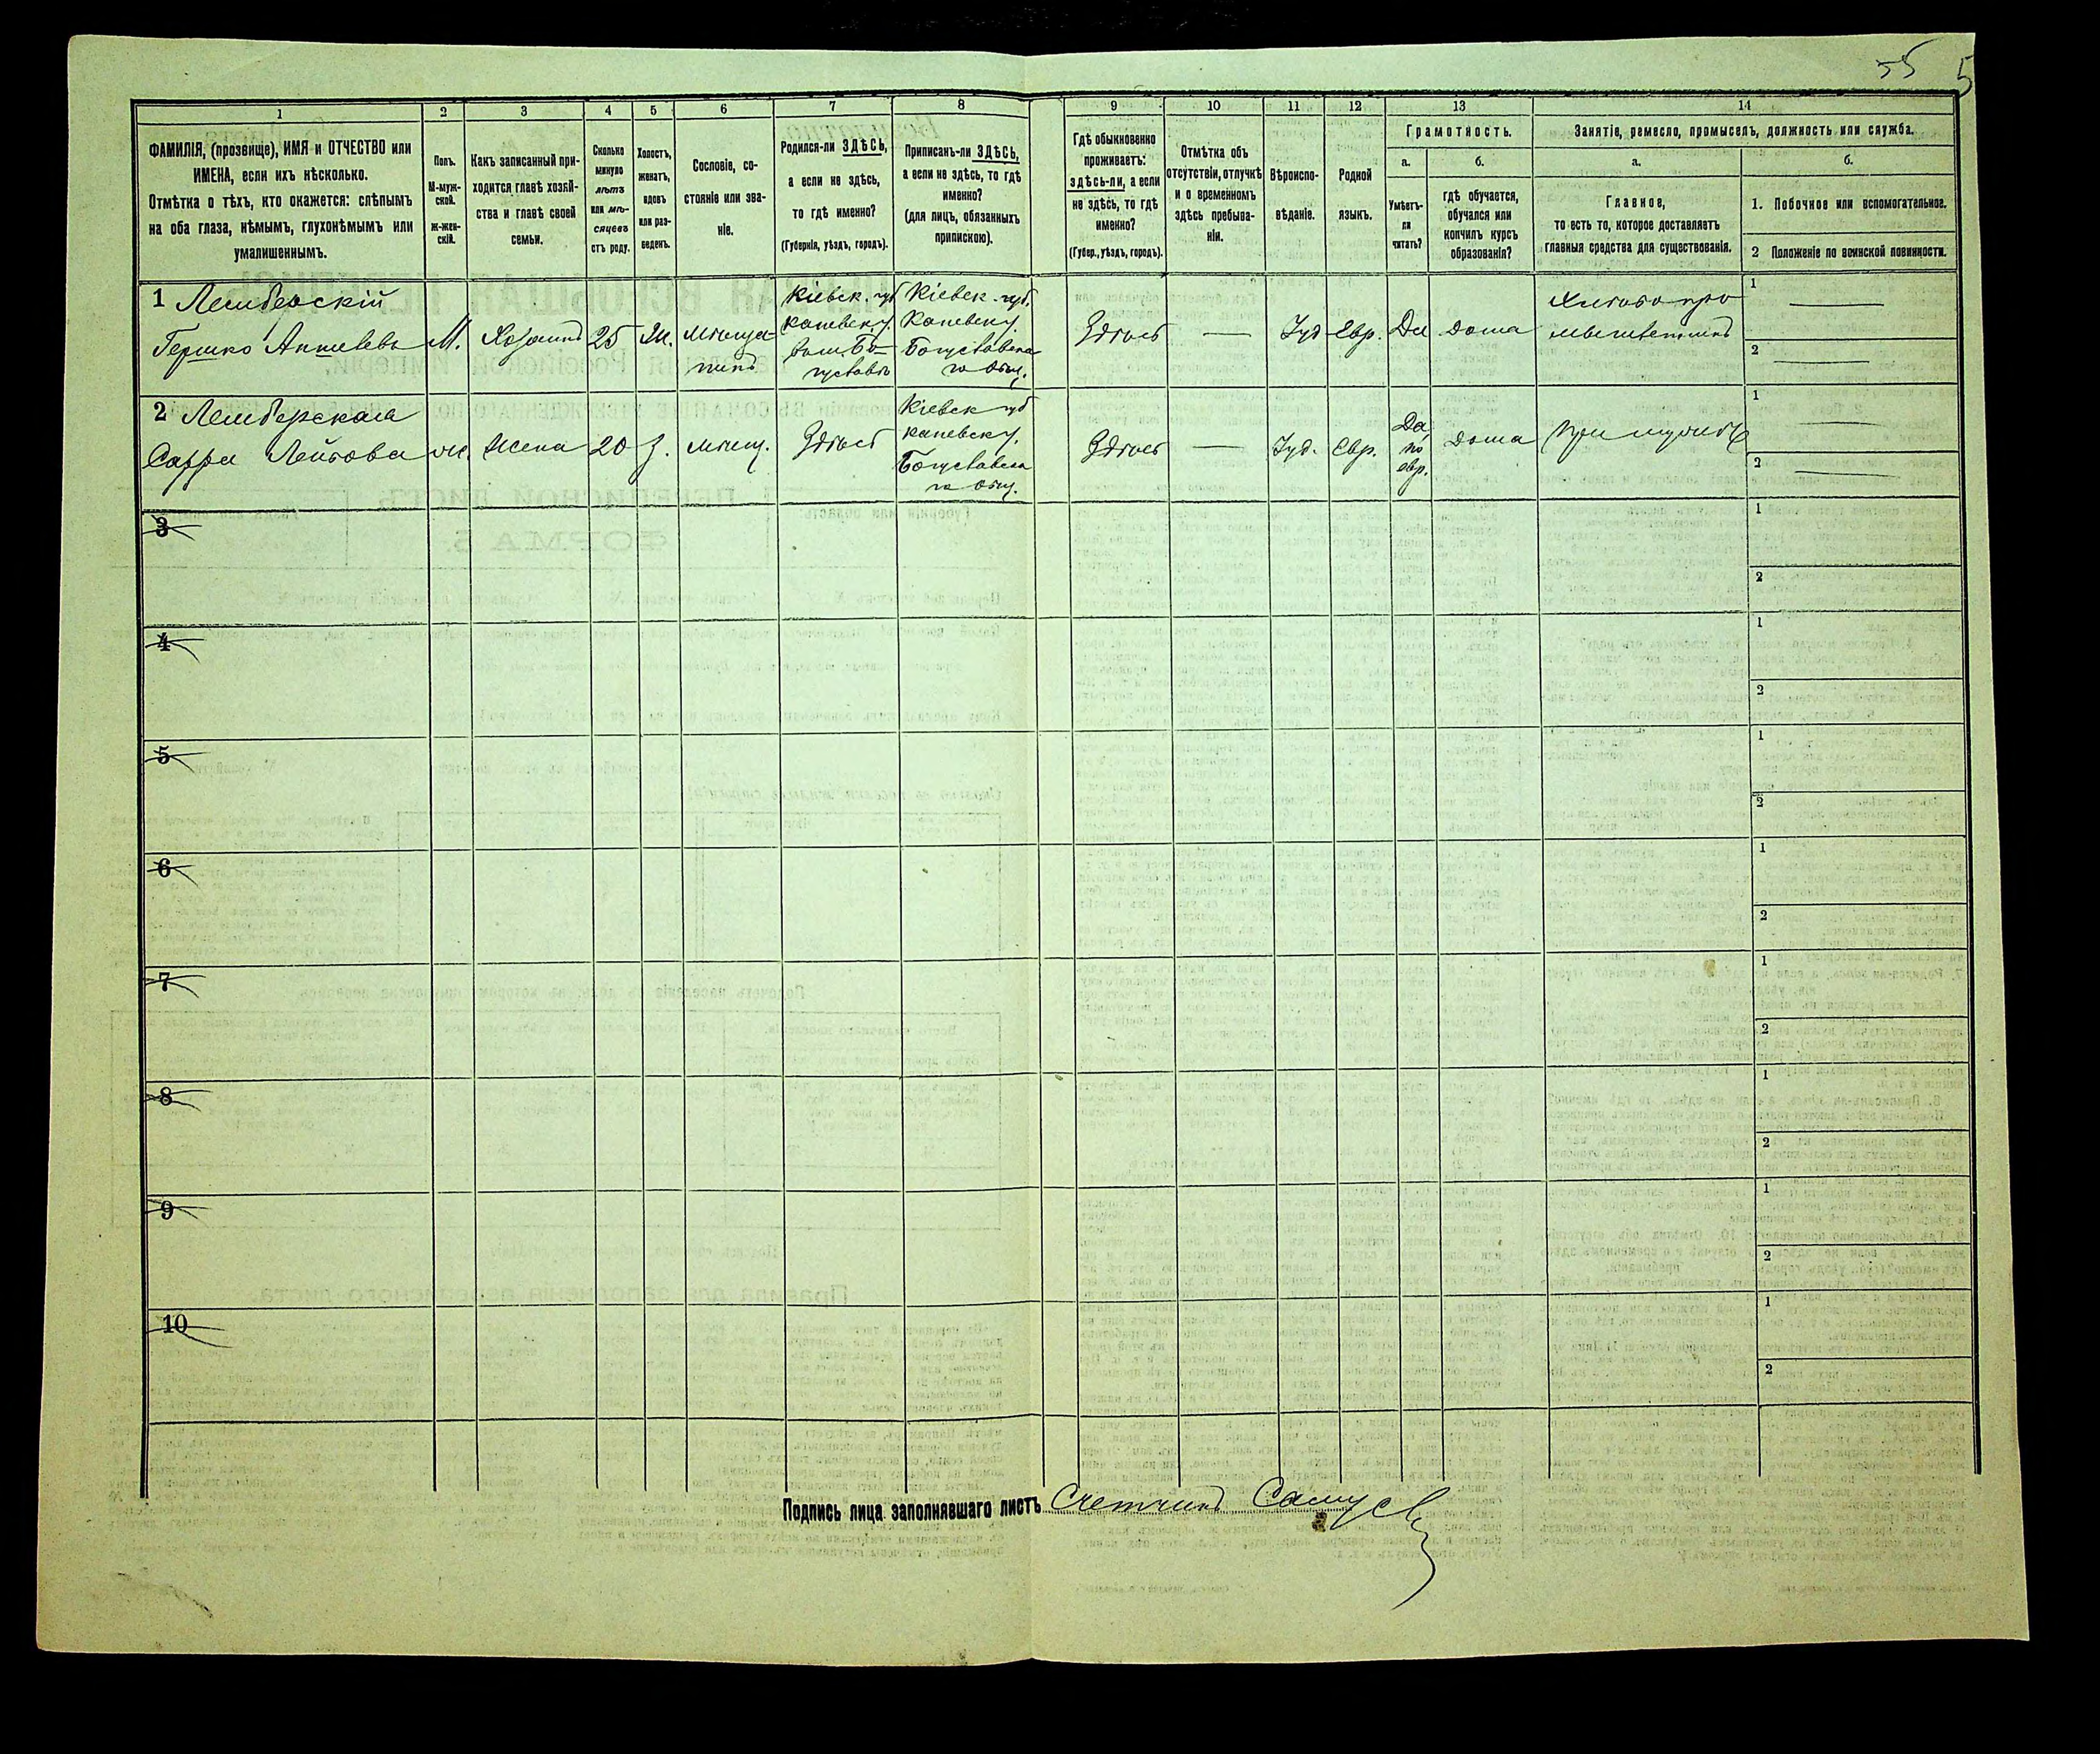 55 5
1 2 3 4 5 6 7 8 9 10 11 12 13 14
ФАМИЛІЯ, (прозвище), ИМЯ и ОТЧЕСТВО или
ИМЕНА, если ихъ нѣсколько.
Отмѣтка о тѣхъ, кто окажется: слѣпымъ
на оба глаза, нѣмымъ, глухонѣмымъ или
умалишеннымъ.
Полъ.
М-муж-
ской.
ж-жен-
скій.
Какъ записанный при-
ходится главѣ хозяй-
ства и главѣ своей
семьи.
Сколько
минуло
лѣтъ
или мѣ-
сяцевъ
отъ роду.
Холостъ,
женатъ,
вдовъ
или раз-
веденъ.
Сословіе, со-
стояніе или зва-
ніе.
Родился-ли ЗДѢСЬ,
а если не здѣсь,
то гдѣ именно?
(Губернія, уѣздъ, городъ).
Приписанъ-ли ЗДѢСЬ,
а если не здѣсь, то гдѣ
именно?
(для лицъ, обязанныхъ
припискою).
Гдѣ обыкновенно
проживаетъ:
здѣсь-ли, а если
не здѣсь, то гдѣ
именно?
(Губер., уѣздъ, городъ).
Отмѣтка объ
отсутствіи, отлучкѣ
и о временномъ
здѣсь пребыва-
ніи.
Вѣроиспо-
вѣданіе.
Родной
языкъ.
Грамотность.
а.
Умѣетъ-
ли
читать?
б.
гдѣ обучается,
обучался или
кончилъ курсъ
образованія?
Занятіе, ремесло, промыселъ, должность или служба.
а.
Главное,
то есть то, которое доставляетъ
главныя средства для существованія.
б.
1. Побочное или вспомогательное.
2 Положеніе по воинской повинности.
1 Лемберскій
Гершко
М.
Хозяинъ
25
Ж.
мѣща-
нинъ
Кіевск. губ
Каневск у.
Кіевск. губ.
Каневск у.
Богуславска
го Общ.
Здѣсь
—
Іуд
Евр.
Да
дома
1
2
2 Лемберская
Сарра Лейбова
ж.
Жена
20
З.
мѣщ.
Здѣсь
Кіевск губ
каневск у.
Богуславска
го Общ.
Здѣсь
—
Іуд.
Евр.
Да,
по
евр.
дома
при мужѣ
1
2
3
1
2
4
1
2
5
1
2
6
1
2
7
1
2
8
1
2
9
1
2
10
1
2
Подпись лица заполнявшаго листъ Счетчикъ